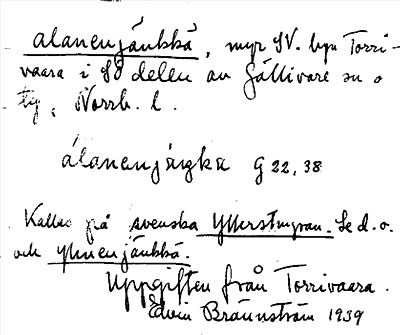 alanenjänkkä, myr SV. byn Torri-
vaara i SO delen av Gällivare sn o
tg, Norrb. l.
álanenjäŋkä G 22, 38
Kallas på svenska Ytterstmyran. Se d. o.
och Ylinenjänkkä.
Uppgiften från Torrivaara.
Edvin Brännström 1939